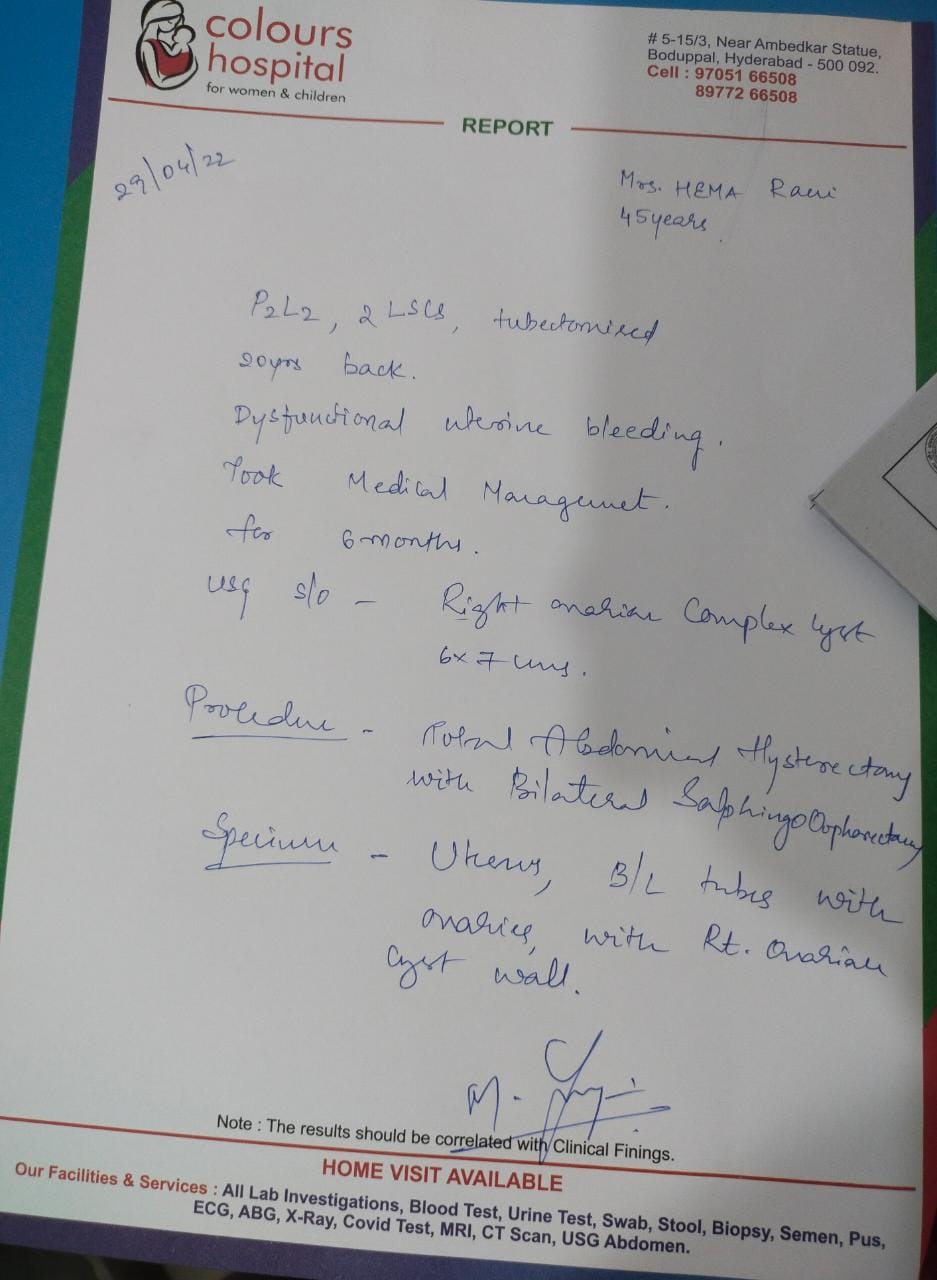 colours
hospital
for women & children
# 5-15/3, Near Ambedkar Statue,
Boduppal, Hyderabad - 500 092.
Cell : 97051 66508
89772 66508
REPORT
29/04/22
Mrs. HEMA Rani
45years.
P2L2, 2 LSCS, tubectomised
20yrs back.
Dysfunctional uterine bleeding.
Took Medical Managemet.
for 6 months.
USG s/o - Right ovarian Complex Cyst
6x7 cms.
Procedure - Total Abdominal Hysterectomy
with Bilateral SalphingoOophorectomy
Specimen - Uterus, B/L tubes with
ovaries, with Rt. Ovarian
Cyst wall.
Note : The results should be correlated with Clinical Finings.
HOME VISIT AVAILABLE
Our Facilities & Services : All Lab Investigations, Blood Test, Urine Test, Swab, Stool, Biopsy, Semen, Pus,
ECG, ABG, X-Ray, Covid Test, MRI, CT Scan, USG Abdomen.